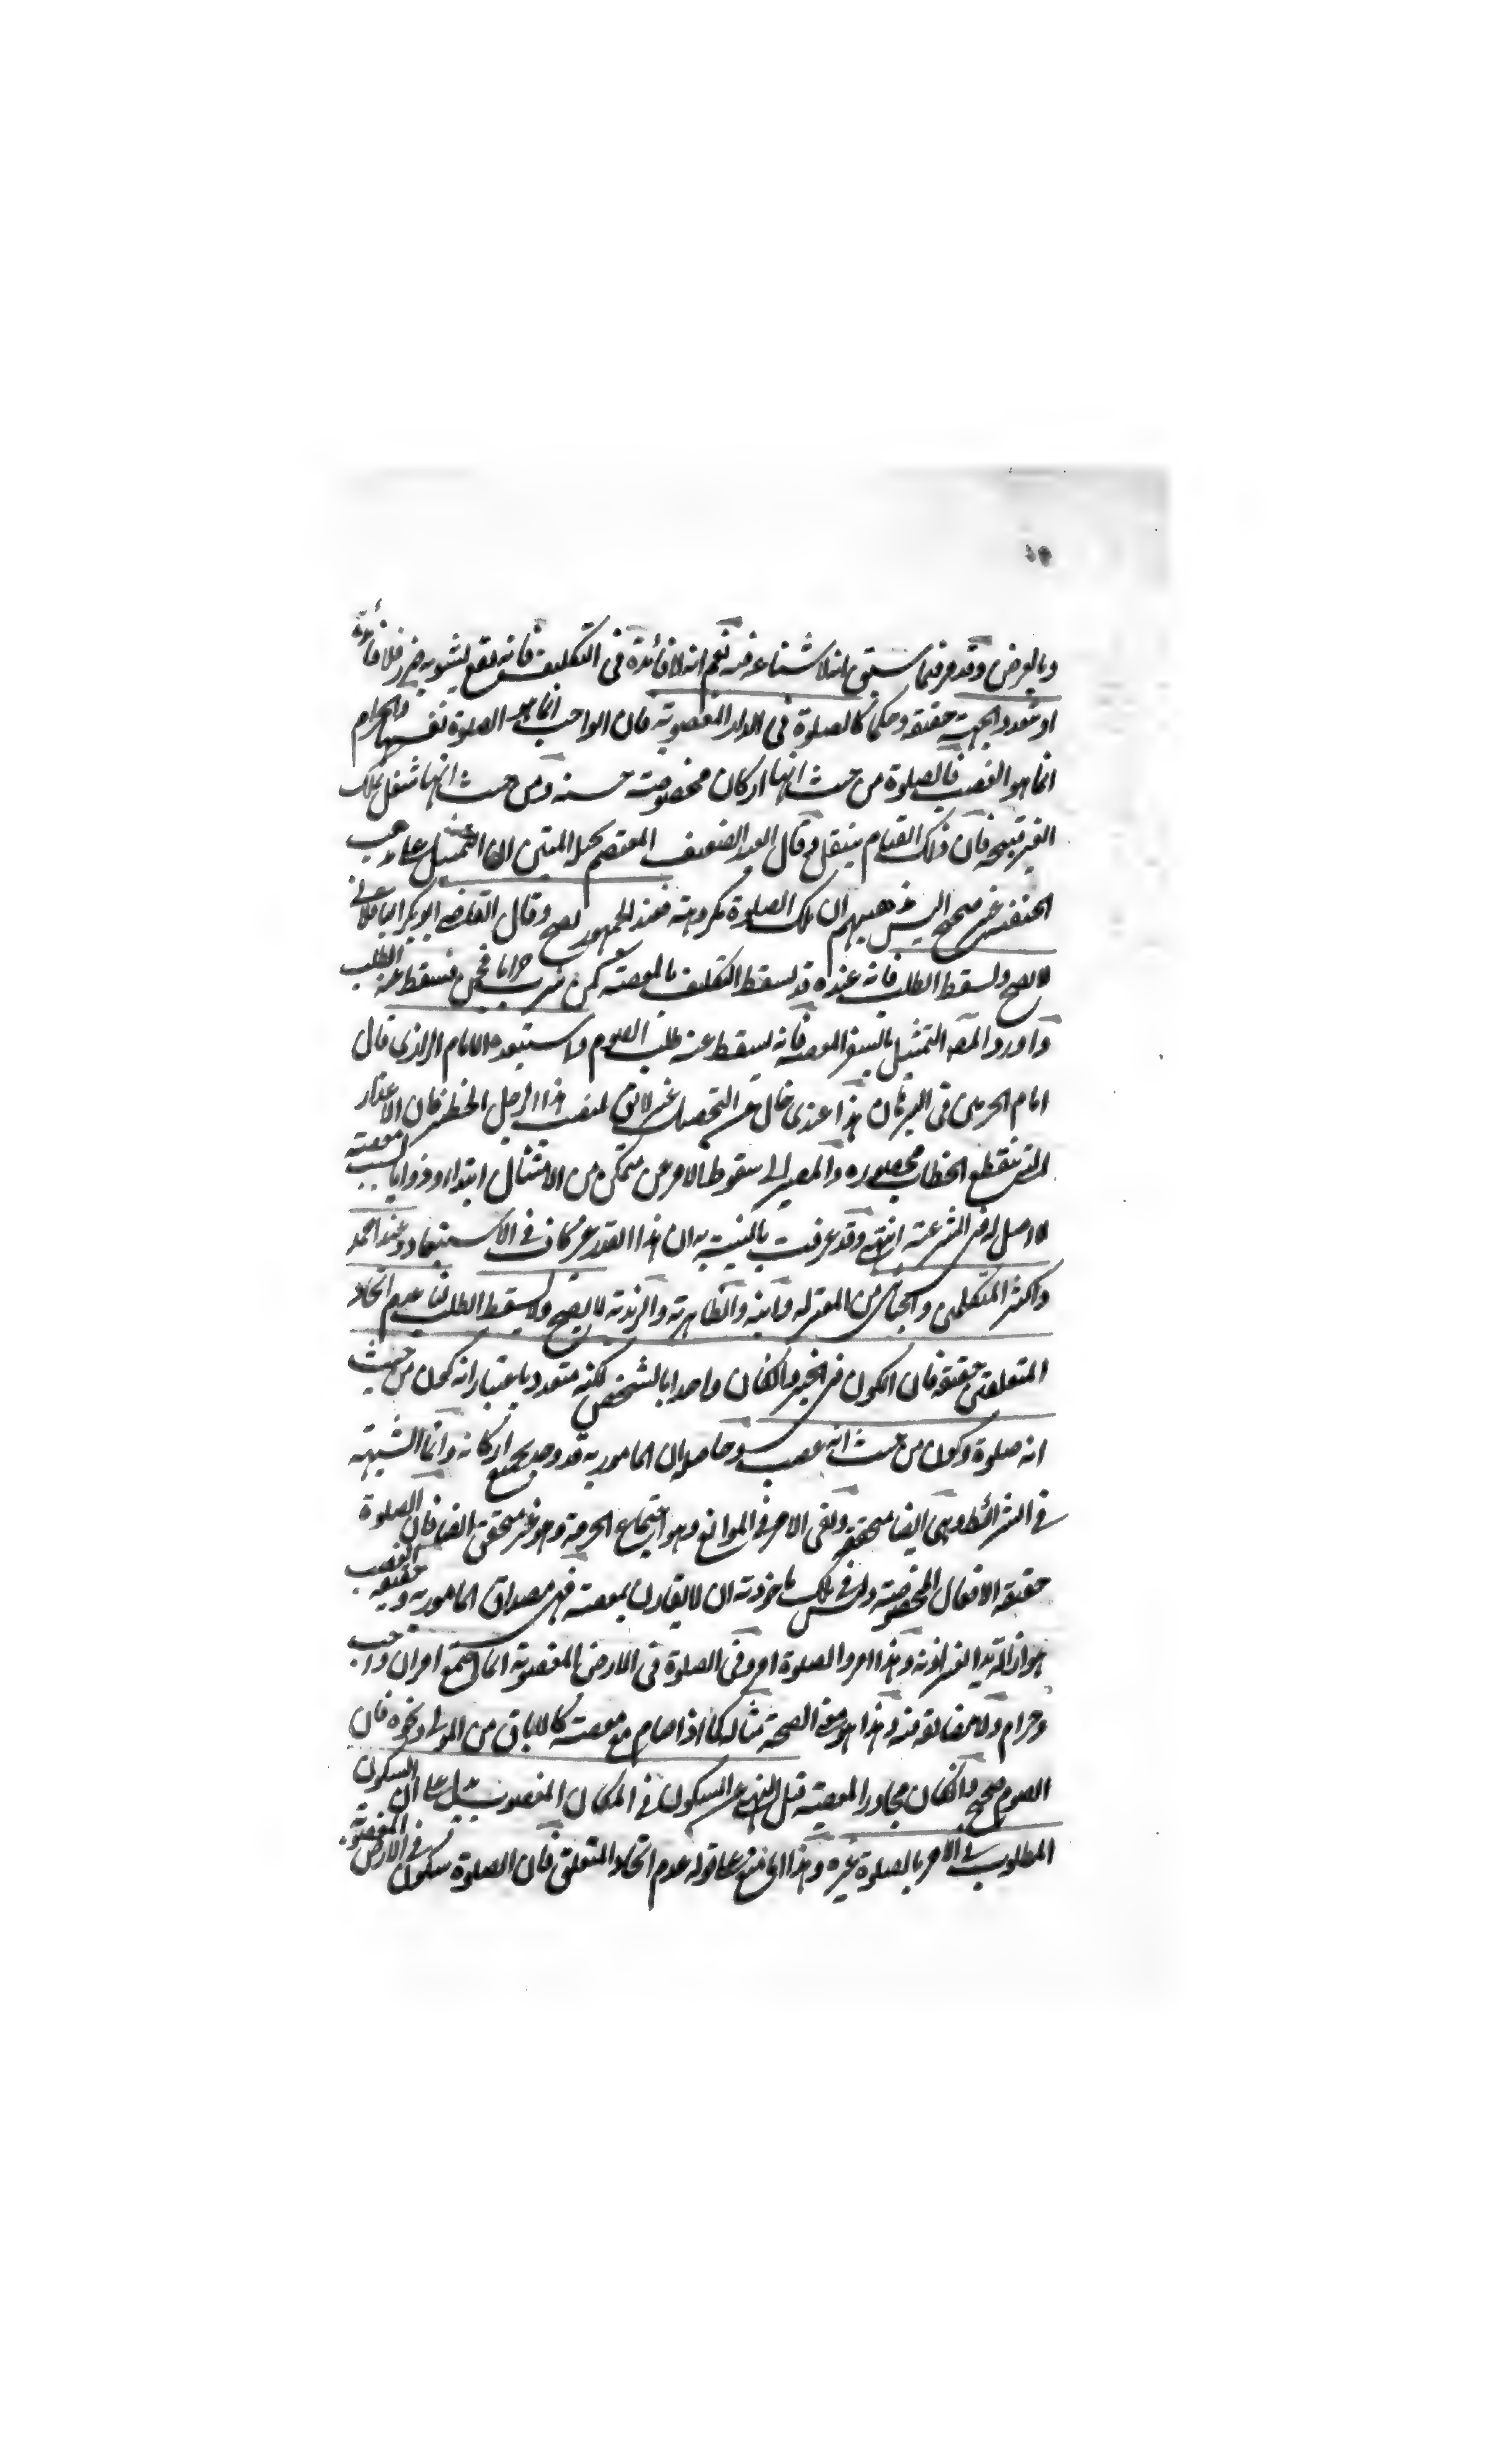 وبالعرض وقد مر فيما سبق انه لا شناعة فيه نعم انه لا فائدة في التكليف فانه يقع بشومه فلا فائدة
او تعدد الجهة حقيقة وحكما كالصلوة في الدار المغصوبة فان الواجب انما هو الصلوة نفسها والحرام
انما هو الغصب فالصلوة من حيث انها اركان مخصوصة حسنة ومن حيث انها شغل بملك
الغير قبيحة فان ذلك القيام وقال العبد الضعيف المعتصم بحبله المتين ان التمثيل على مذهب
الحنفية غير صحيح اليس مذهبهم ان تلك الصلوة مكروهة فعند الجمهور يصح وقال القاضي ابو بكر الباقلاني
لا يصح ويسقط الطلب فانه عنده قد يسقط التكليف بالمعصية كمن شرب فجن فسقط عنه الطلب
واورد المص التمثيل بالسفر المعصية فانه يسقط عنه طلب الصوم واستبعده الامام الرازي قال
امام الحرمين في البرهان هذا عندي خال عن التحصيل غير لائق لمنصب هذا الرجل الخطير فان الاعذار
التي ينقطع الخطاب محصورة والمصير الى سقوط الامر عن متمكن من الامتثال ابتداء ودواما بسبب معصية
لا اصل له في الشريعة انتهى وقد عرفت ان هذا القدر كاف في الاستبعاد وعند احمد
واكثر المتكلمين والجبائي من المعتزلة وابنه والظاهرية والزيدية لا يصح ولا يسقط الطلب لنا عدم اتحاد
المتعلقين حقيقة فان الكون في الحيز وان كان واحدا بالشخص لكنه متعدد باعتبار انه كون من حيث
انه صلوة وكون من حيث انه غصب وحاصله ان المامور به قد وجد بجميع اركانه وانما الشبهة
في الشرائط وهي ايضا متحققة وبقي الامر في الموانع وهو اجتماع الحرمة وهو غير متحقق ايضا فان الصلوة
حقيقة الافعال المخصوصة وليس في تلك ماخوذة ان لا يقارن بمعصية فهي مصداق المامور به وحقيقة الغصب
هو ازالة يد الغير وهذا امر والصلوة امر وفي الصلوة في الارض المغصوبة انما اجتمع امران واجب
وحرام ولا مضايقة فيه وهذا هو معنى الصحة مثاله كما اذا صام مع معصية كالاباق من المولى ونحوه فان
الصوم صحيح وان كان مجاور المعصية قيل النهي عن السكون في المكان المغصوب يدل على ان السكون
المطلوب في الامر بالصلوة غيره وهذا على قوله عدم اتحاد المتعلق فان الصلوة سكون في الارض المغصوبة